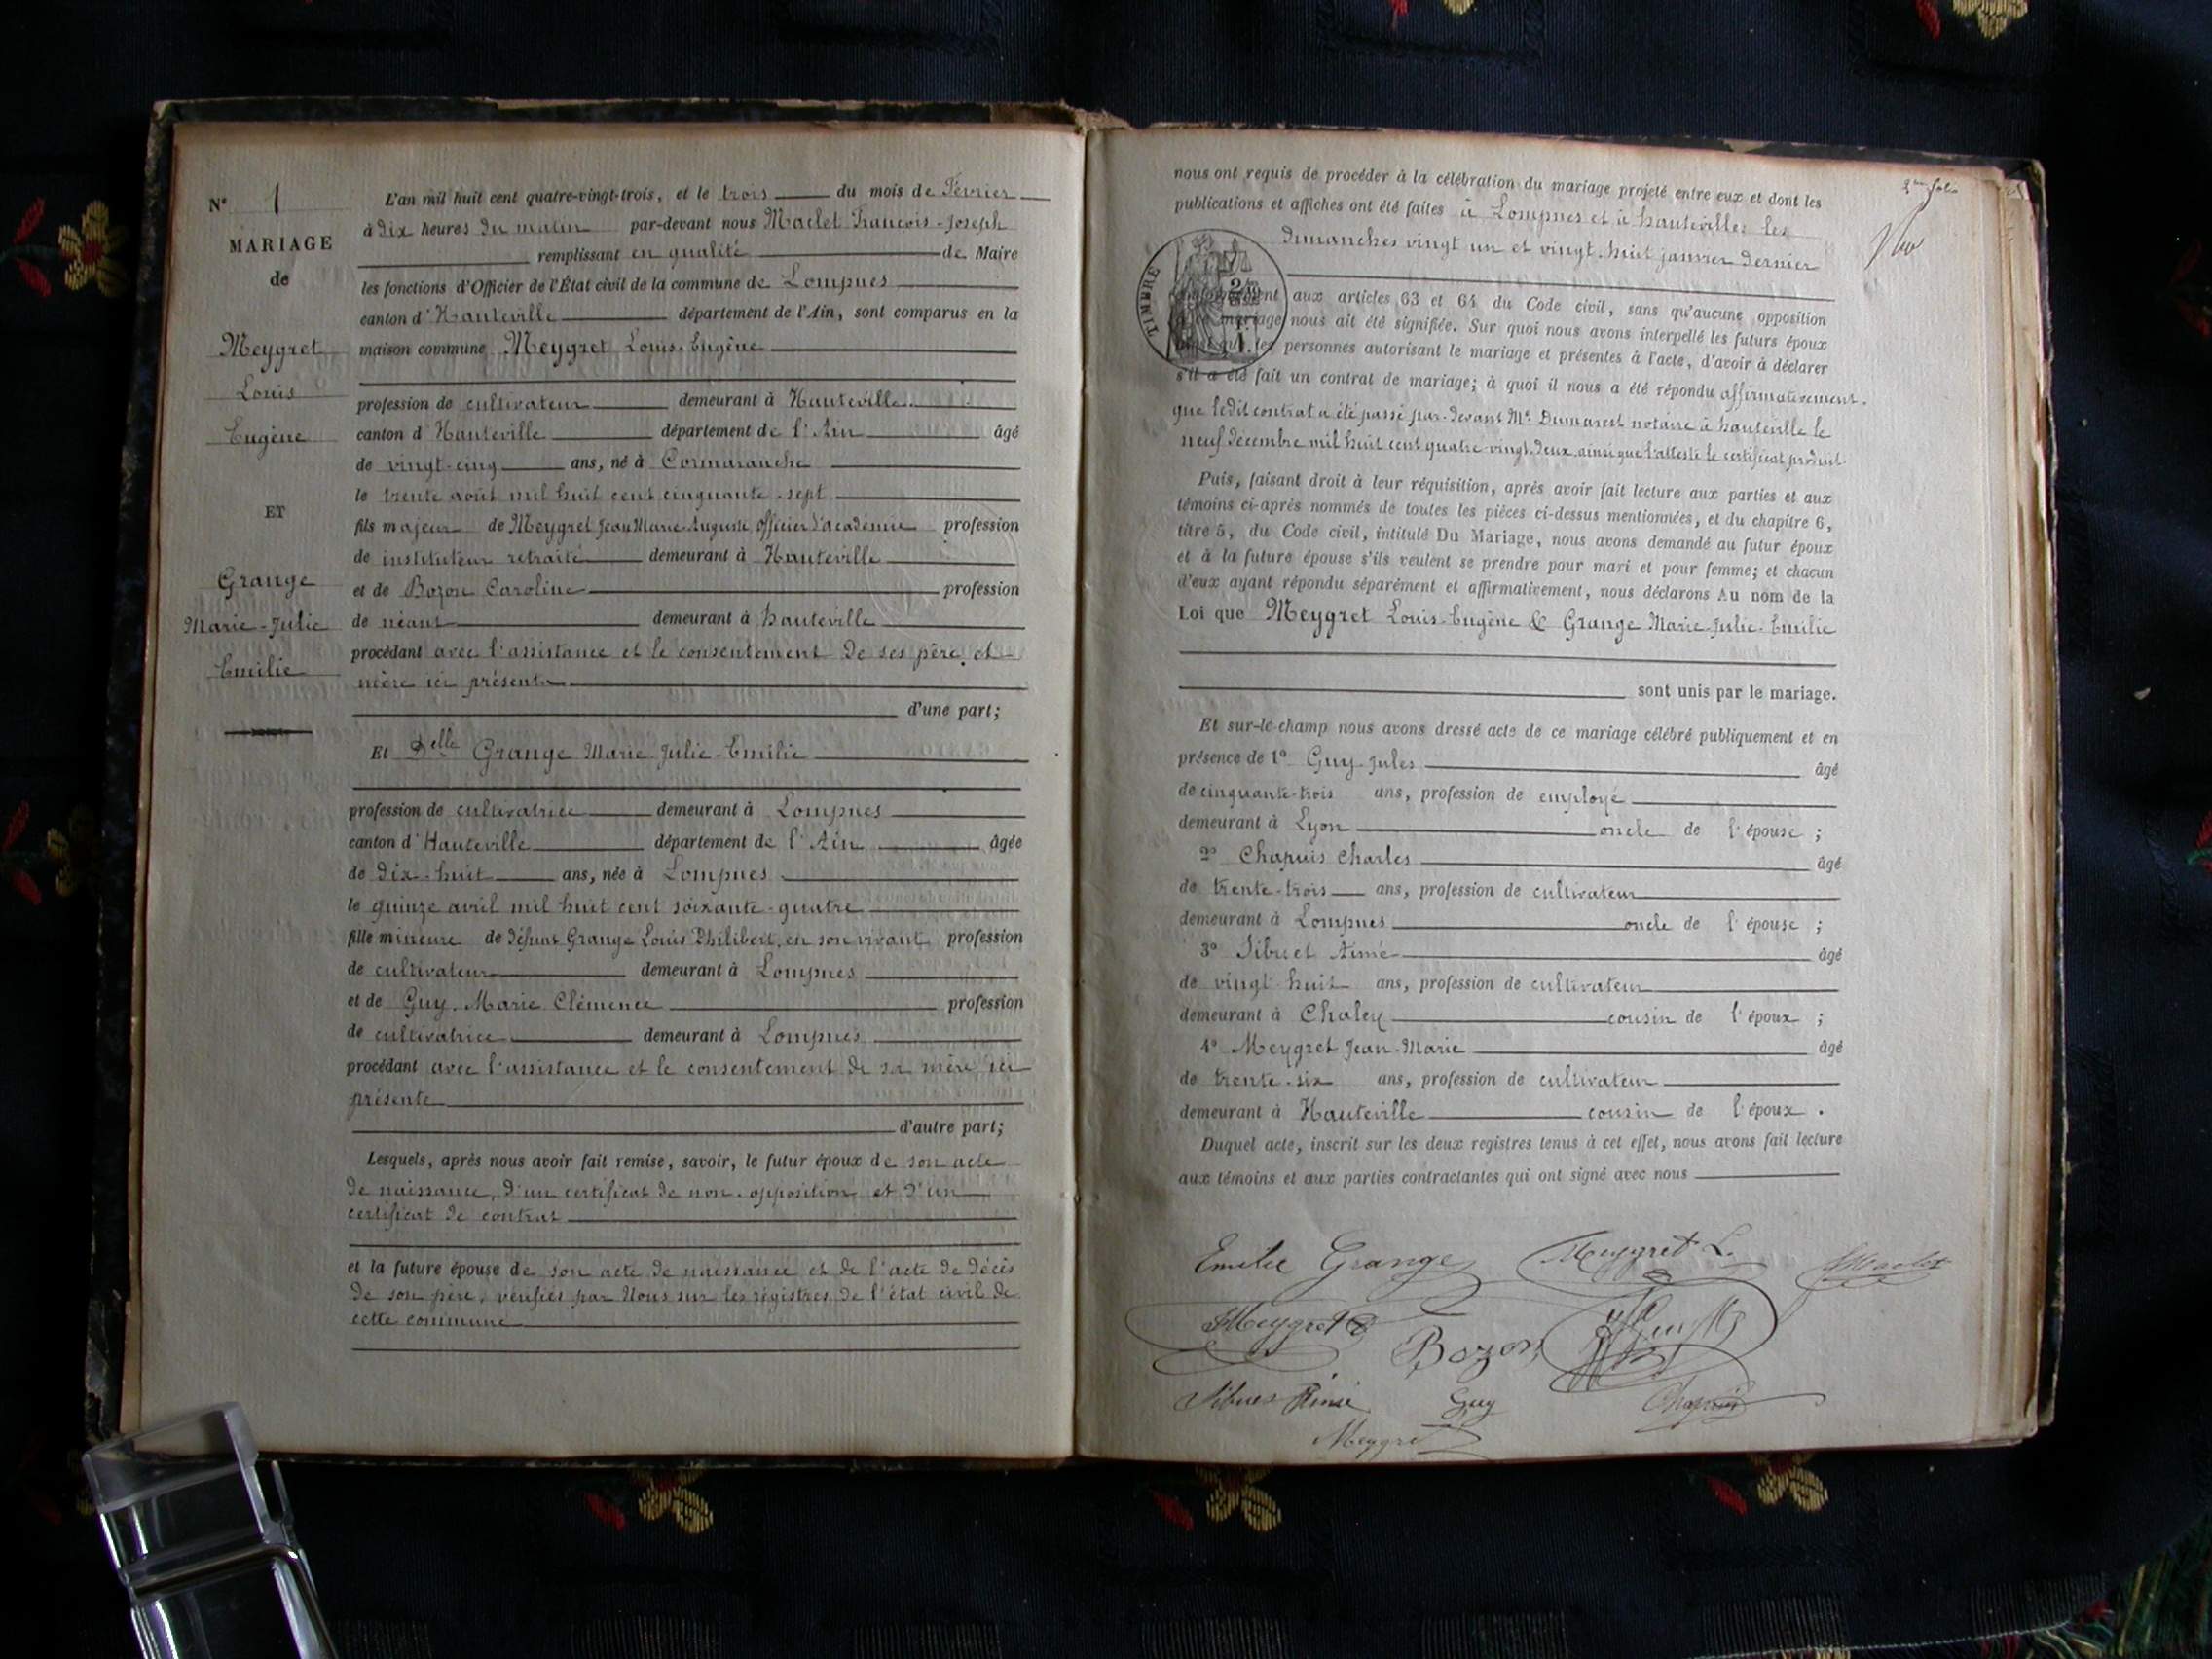 N° 1
MARIAGE
de
Meygret
Louis
Eugène
ET
Grange
Marie-Julie
Emilie
L'an mil huit cent quatre-vingt-trois, et le trois du mois de Février
à dix heures du matin par-devant nous Maclet François-Joseph
remplissant en qualité de Maire
les fonctions d'Officier de l'État civil de la commune de Lompnes
canton d'Hauteville département de l'Ain, sont comparus en la
maison commune Meygret Louis-Eugène
profession de cultivateur demeurant à Hauteville
canton d'Hauteville département de l'Ain âgé
de vingt-cinq ans, né à Cormaranche
le trente août mil huit cent cinquante-sept
fils majeur de Meygret Jean Marie-Auguste, officier d'académie profession
de instituteur retraité demeurant à Hauteville
et de Bozon Caroline profession
de néant demeurant à hauteville
procédant avec l'assistance et le consentement de ses père et
mère ici présents
d'une part;
Et Delle Grange Marie-Julie-Emilie
profession de cultivatrice demeurant à Lompnes
canton d'Hauteville département de l'Ain âgée
de dix-huit ans, née à Lompnes
le quinze avril mil huit cent soixante-quatre
fille mineure de défunt Grange Louis Philibert, en son vivant profession
de cultivateur demeurant à Lompnes
et de Guy Marie Clémence profession
de cultivatrice demeurant à Lompnes
procédant avec l'assistance et le consentement de sa mère ici
présente
d'autre part;
Lesquels, après nous avoir fait remise, savoir, le futur époux de son acte
de naissance, d'un certificat de non-opposition et d'un
certificat de contrat
et la future épouse de son acte de naissance et de l'acte de décès
de son père, vérifiés par Nous sur les registres de l'état civil de
cette commune
2me folio
nous ont requis de procéder à la célébration du mariage projeté entre eux et dont les
publications et affiches ont été faites à Lompnes et à hauteville les
dimanches vingt un et vingt-huit janvier dernier
TIMBRE
aux articles 63 et 64 du Code civil, sans qu'aucune opposition
mariage nous ait été signifiée. Sur quoi nous avons interpellé les futurs époux
les personnes autorisant le mariage et présentes à l'acte, d'avoir à déclarer
s'il a été fait un contrat de mariage; à quoi il nous a été répondu affirmativement.
que ledit contrat a été passé par-devant Me Dumarest notaire à hauteville le
neuf décembre mil huit cent quatre-vingt-deux, ainsi que l'atteste le certificat produit.
Puis, faisant droit à leur réquisition, après avoir fait lecture aux parties et aux
témoins ci-après nommés de toutes les pièces ci-dessus mentionnées, et du chapitre 6,
titre 5, du Code civil, intitulé Du Mariage, nous avons demandé au futur époux
et à la future épouse s'ils veulent se prendre pour mari et pour femme; et chacun
d'eux ayant répondu séparément et affirmativement, nous déclarons Au nom de la
Loi que Meygret Louis-Eugène & Grange Marie-Julie-Emilie
sont unis par le mariage.
Et sur-le-champ nous avons dressé acte de ce mariage célébré publiquement et en
présence de 1° Guy Jules âgé
de cinquante-trois ans, profession de employé
demeurant à Lyon oncle de l'épouse ;
2° Chapuis Charles âgé
de trente-trois ans, profession de cultivateur
demeurant à Lompnes oncle de l'épouse ;
3° Sibuet Aimé âgé
de vingt huit ans, profession de cultivateur
demeurant à Chaley cousin de l'époux ;
4° Meygret Jean-Marie âgé
de trente-six ans, profession de cultivateur
demeurant à Hauteville cousin de l'époux .
Duquel acte, inscrit sur les deux registres tenus à cet effet, nous avons fait lecture
aux témoins et aux parties contractantes qui ont signé avec nous
Emilie Grange Meygret L. Maclet
Meygret Bozon
Sibuet Aimé Guy Chapuis
Meygret